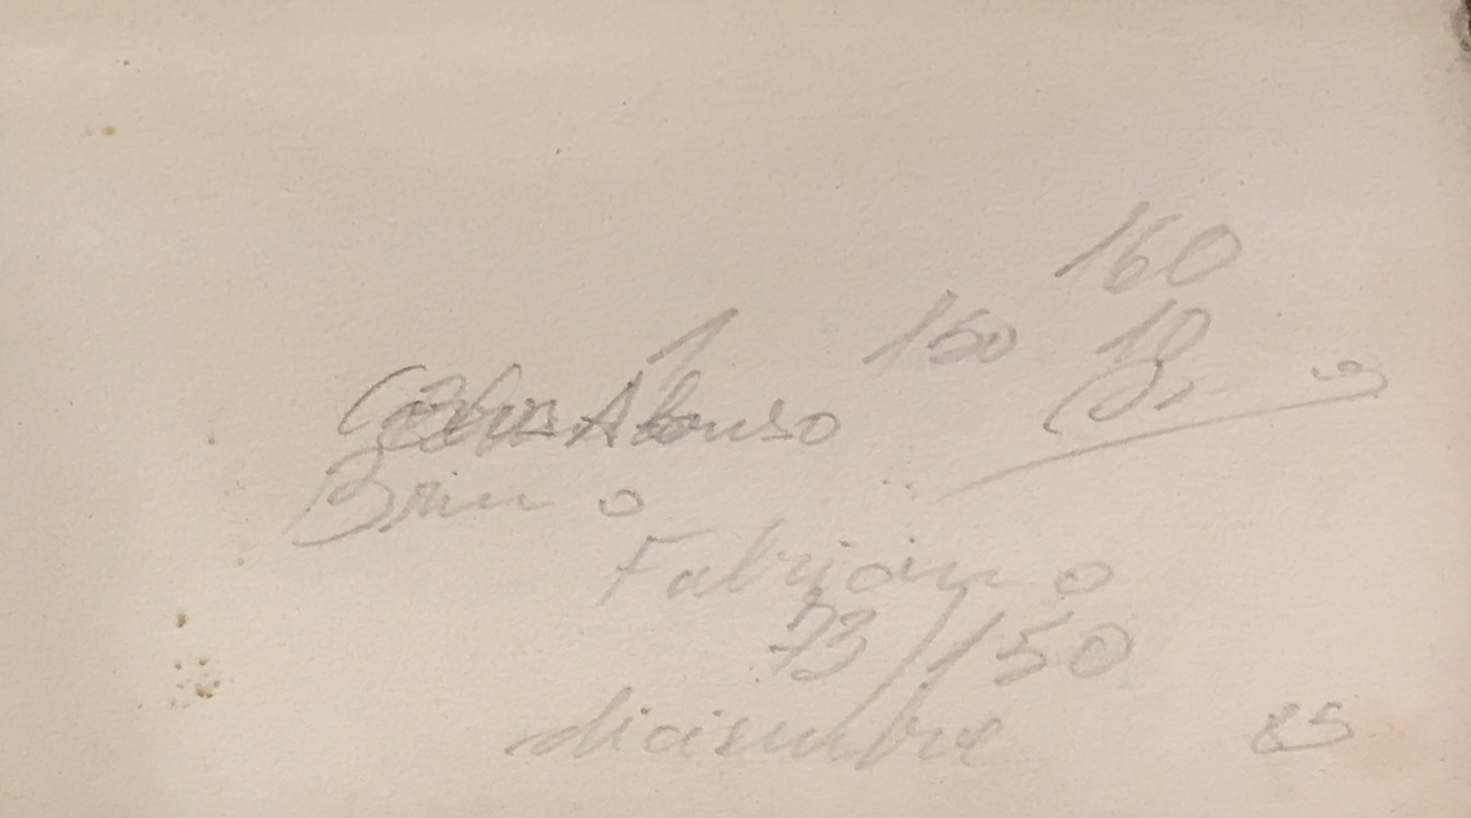 160
1 150 10
Carlos Alonso
Bruno
Fabriano
73/150
diciembre 85